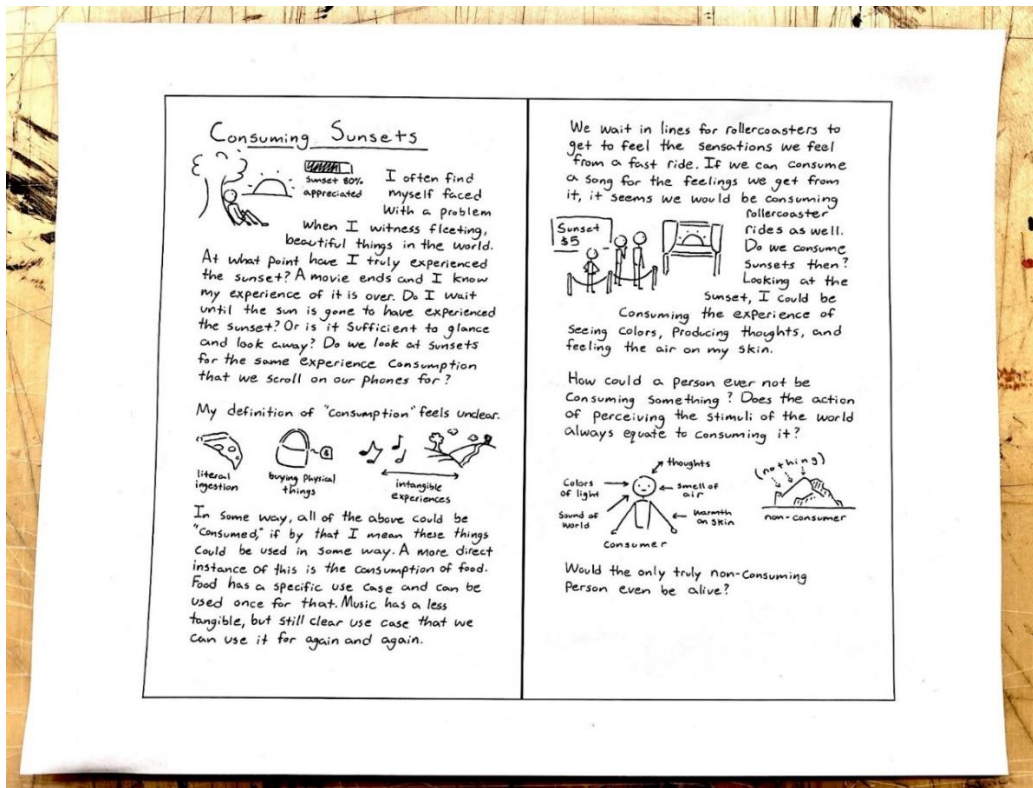 Consuming Sunsets
Sunset 80%
appreciated
I often find
myself faced
with a problem
when I witness fleeting,
beautiful things in the world.
At what point have I truly experienced
the sunset? A movie ends and I know
my experience of it is over. Do I wait
until the sun is gone to have experienced
the sunset? Or is it sufficient to glance
and look away? Do we look at sunsets
for the same experience consumption
that we scroll on our phones for?
My definition of "consumption" feels unclear.
literal
ingestion
$
buying physical
things
intangible
experiences
In some way, all of the above could be
"consumed," if by that I mean these things
could be used in some way. A more direct
instance of this is the consumption of food.
Food has a specific use case and can be
used once for that. Music has a less
tangible, but still clear use case that we
can use it for again and again.
We wait in lines for rollercoasters to
get to feel the sensations we feel
from a fast ride. If we can consume
a song for the feelings we get from
it, it seems we would be consuming
rollercoaster
rides as well.
Do we consume
sunsets then?
Looking at the
sunset, I could be
consuming the experience of
seeing colors, producing thoughts, and
feeling the air on my skin.
Sunset
$5
How could a person ever not be
consuming something? Does the action
of perceiving the stimuli of the world
always equate to consuming it?
thoughts
Colors
of light
smell of
air
Sound of
world
warmth
on skin
Consumer
(nothing)
non-consumer
Would the only truly non-consuming
person even be alive?